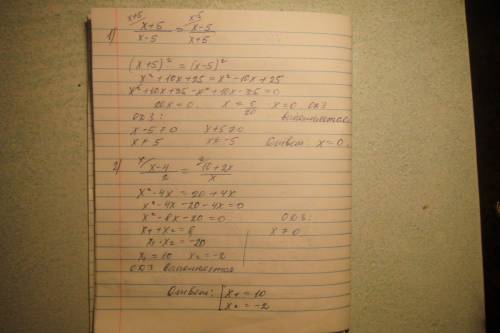 x+5 x-5
1) x+5/x-5 = x-5/x+5
(x+5)² = (x-5)²
x²+10x+25 = x²-10x+25
x²+10x+25-x²+10x-25=0
20x=0. x = 0/20 x=0 ОДЗ
ОДЗ: выполняется
x-5≠0 x+5≠0
x≠5 x≠-5 Ответ: x=0.
2) x/ x-4/2 = 2/ 10+2x/x
x²-4x = 20+4x
x²-4x-20-4x=0
x²-8x-20=0 ОДЗ:
x₁+x₂=8 x≠0
x₁·x₂=-20
x₁=10 x₂=-2
ОДЗ выполняется
Ответ: [x₁=10
x₂=-2